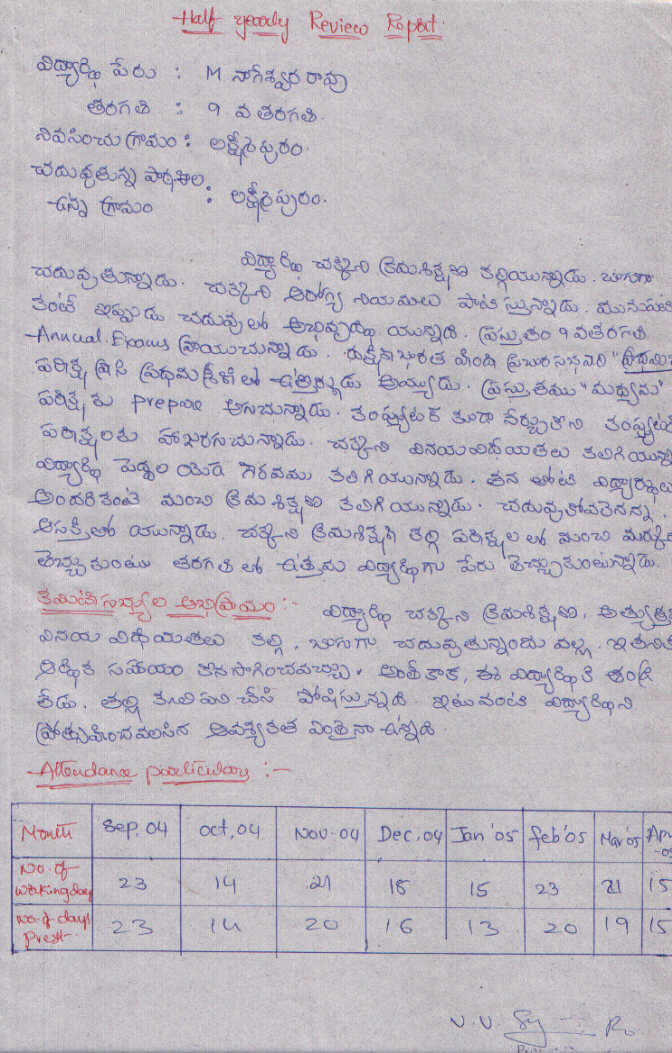 Half yearly Review Report
విద్యార్థి పేరు : M నాగేశ్వర రావు
తరగతి : 9 వ తరగతి.
నివసించు గ్రామం : లక్ష్మీపురం.
చదువుతున్న పాఠశాల : లక్ష్మీపురం.
ఉన్న గ్రామం
విద్యార్థి చక్కని క్రమశిక్షణ కల్గియున్నాడు. బాగుగా
చదువుతున్నాడు. చక్కని ఆరోగ్య నియమలు పాటిస్తున్నాడు. మునుపటి
కంటే ఇప్పుడు చదువులో అభివృద్ధి యున్నది. ప్రస్తుతం 9 వతరగతి
Annual Exams వ్రాయుచున్నాడు. దక్షిణ భారత హింది ప్రచార సభవారి
పరీక్ష వ్రాసి ప్రథమ శ్రేణిలో ఉత్తీర్ణుడు అయ్యాడు. ప్రస్తుతము "మధ్యమ"
పరీక్ష కు prepare అగుచున్నాడు. కంప్యూటర్ కూడా నేర్చుకొని కంప్యూటర్
పరీక్షలకు హాజరగుచున్నాడు. చక్కని వినయవిధేయతలు కలిగియున్న
విద్యార్థి పెద్దల యెడ గౌరవము కలిగియున్నాడు. తన తోటి విద్యార్థులు
అందరికంటే మంచి క్రమశిక్షణ కలిగియున్నాడు. చదువుకోవలెనన్న
ఆసక్తితో యున్నాడు. చక్కని క్రమశిక్షణ కల్గి పరీక్షలలో మంచి మార్కులు
తెచ్చుకుంటూ తరగతి లో ఉత్తమ విద్యార్థిగా పేరు తెచ్చుకుంటున్నాడు.
కమిటిసభ్యుల అభిప్రాయం :- విద్యార్థి చక్కని క్రమశిక్షణ, అత్యుత్తమ
వినయ విధేయతలు కల్గి, బాగుగా చదువుతున్నందు వల్ల, ఇతనికి
ఆర్థిక సహాయం కొనసాగించవచ్చు. అంతేకాక, ఈ విద్యార్థికి తండ్రి
లేడు. తల్లి కూలిపని చేసి పోషిస్తున్నది. ఇటువంటి విద్యార్థిని
ప్రోత్సహించవలసిన ఆవశ్యకత ఎంతైనా ఉన్నది.
Attendance particulars :-
Month Sep. 04 Oct. 04 Nov. 04 Dec. 04 Jan '05 Feb '05 Mar '05
No. of working days 23 14 21 18 15 23 21 15
No. of days Present 23 14 20 16 13 20 19 15